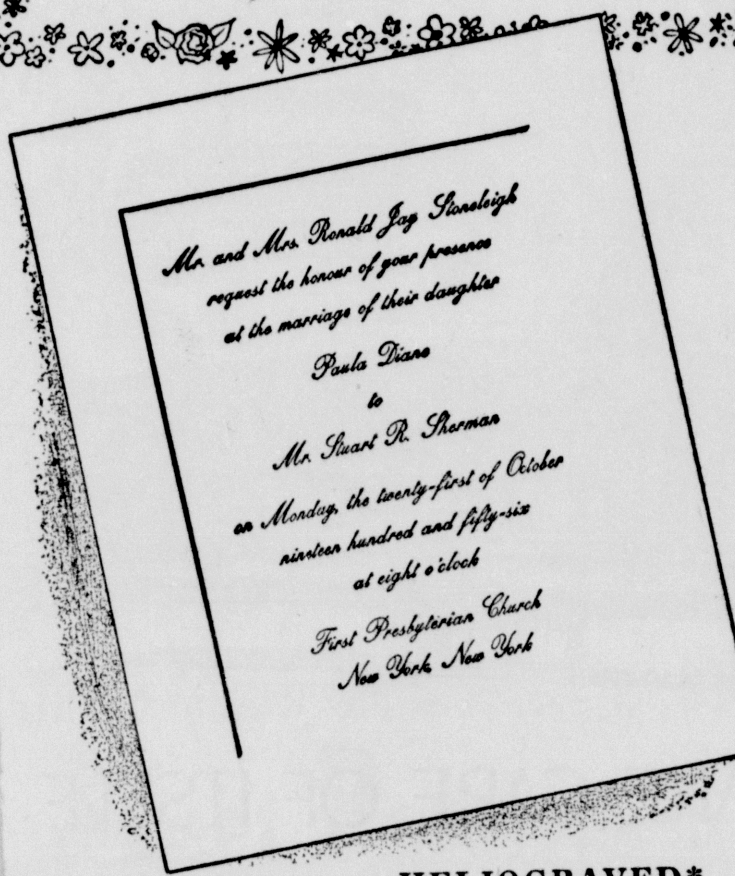 Mr. and Mrs. Ronald Jay Stoneleigh
request the honour of your presence
at the marriage of their daughter
Paula Diane
to
Mr. Stuart R. Sherman
on Monday, the twenty-first of October
nineteen hundred and fifty-six
at eight o'clock
First Presbyterian Church
New York, New York
HELIOGRAVED*